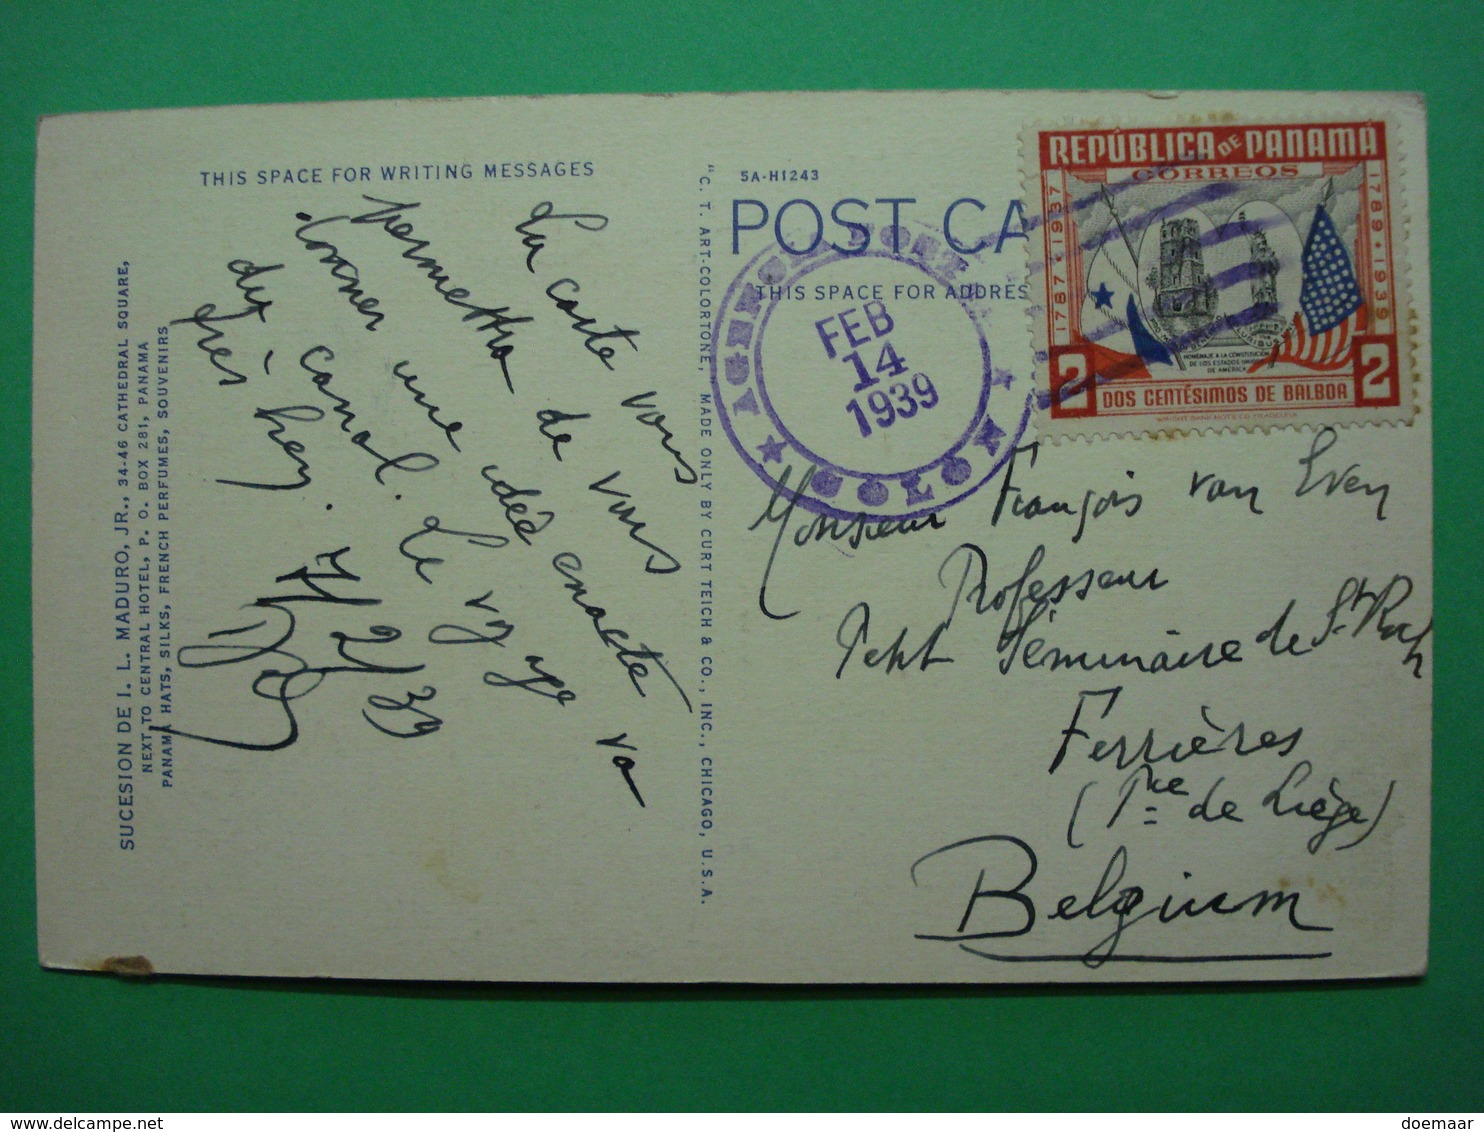 THIS SPACE FOR WRITING MESSAGES
La carte vous
permettra de vous
donner une idée exacte
du canal. Le voyage va
très bien.
7/2/39
SUCESION DE I. L. MADURO, JR., 34-46 CATHEDRAL SQUARE,
NEXT TO CENTRAL HOTEL, P. O. BOX 281, PANAMA
PANAMA HATS, SILKS, FRENCH PERFUMES, SOUVENIRS
"C. T. ART-COLORTONE, MADE ONLY BY CURT TEICH & CO., INC., CHICAGO, U.S.A.
5A-H1243
POST CA
THIS SPACE FOR ADDRES
COLON
FEB
14
1939
REPÚBLICA DE PANAMÁ
CORREOS
1787·1937
1789·1939
HOMENAJE A LA CONSTITUCIÓN
DE LOS ESTADOS UNIDOS
DE AMÉRICA
2 2
DOS CENTÉSIMOS DE BALBOA
Monsieur François van Even
Professeur
Petit Séminaire de St Roch
Ferrières
(Pce de Liège)
Belgium
www.delcampe.net
doemaar